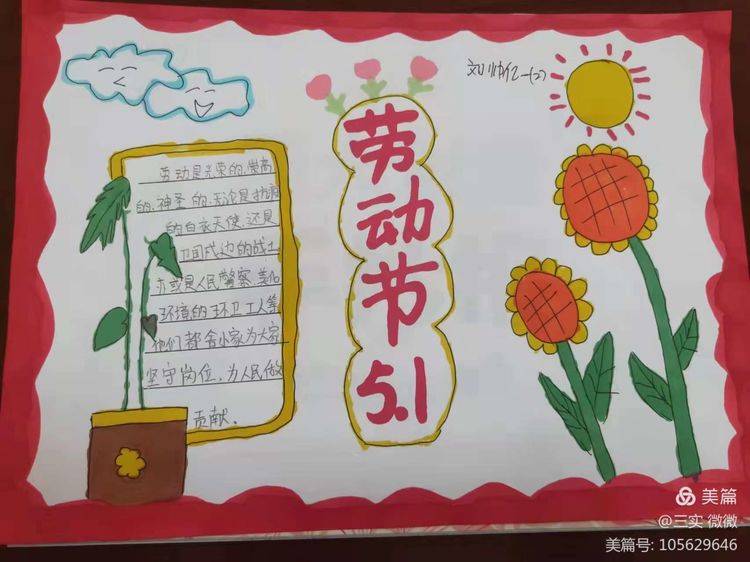 劳动节
5.1
劳动是光荣的、崇高
的、神圣的、无论是抗疫
的白衣天使、还是
卫国戍边的战士
亦或是人民警察、美化
环境的环卫工人等
他们都舍小家为大家
坚守岗位、为人民做
贡献.
美篇
@三实 微微
美篇号: 105629646